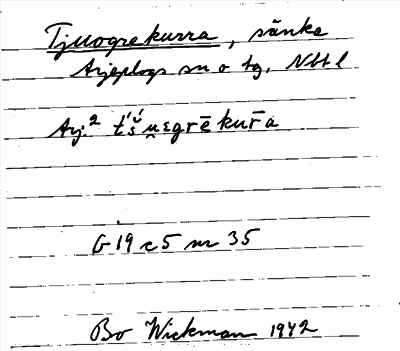 Tjuogrekurra, sänke
Arjeplogs sn o tg, Nbtl
Arj.² t́śu̯ɛgrēkur̄a
G 19 c 5 nr 35
Bo Wickman 1942